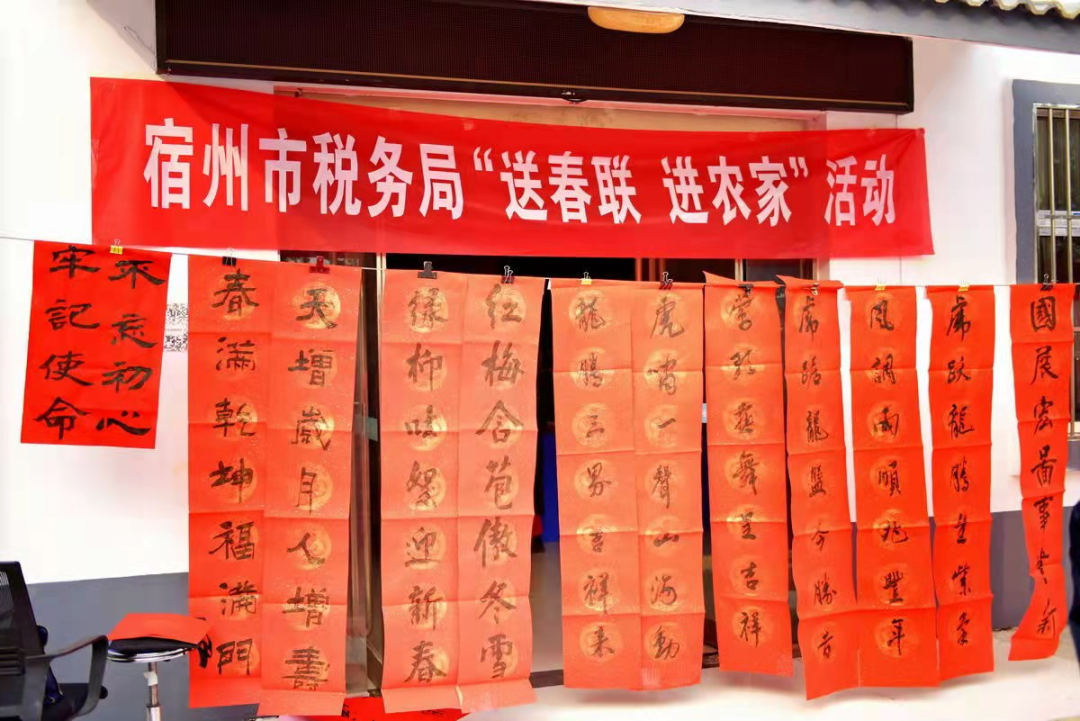 宿州市税务局“送春联 进农家”活动
不忘初心
牢記使命
天增歲月人增壽
春滿乾坤福滿門
红梅含苞傲冬雪
绿柳吐絮迎新春
虎嘯一聲山海動
龍騰三界吉祥来
鶯歌燕舞呈吉祥
虎踞龍盤今勝昔
風調雨順兆豐年
虎躍龍騰生紫氣
國展宏圖事事新